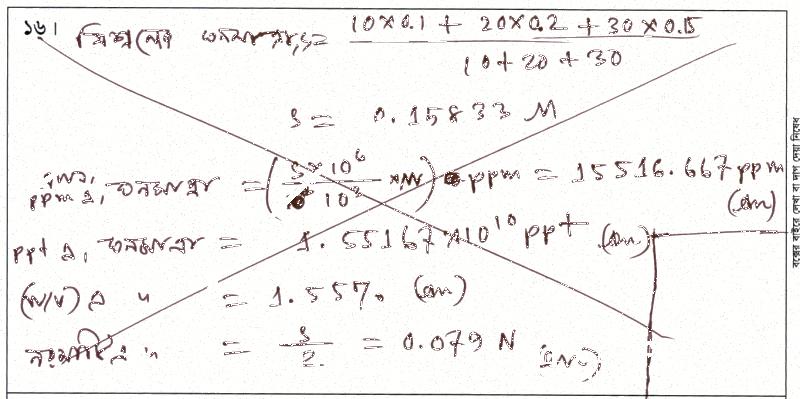 ১৬। মিশ্রণের ঘনমাত্রা, S = (10×0.1 + 20×0.2 + 30×0.15) / (10+20+30)
S = 0.15833 M
ppm এ, ঘনমাত্রা = (S×10⁶ / 10³ ×M) ppm = 15516.667 ppm (Ans)
ppt এ, ঘনমাত্রা = 1.55167×10¹⁰ ppt (Ans)
(W/V) এ " = 1.55%. (Ans)
নরমালিটি " = S/2 = 0.079 N (Ans)
বক্সের বাইরে লেখা বা দাগ দেয়া নিষেধ